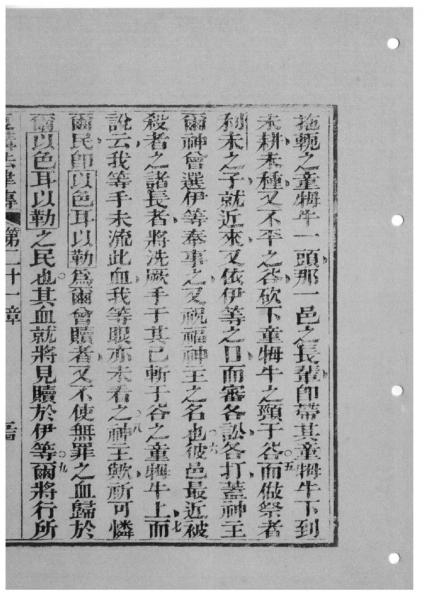 拖軛之童牸牛一頭那一邑之長輩卽帶其童牸牛下到
未耕未種又不平之谷砍下童牸牛之頸于谷而做祭者 五
利未之子就近來又依伊等之口而審各訟各打蓋神主
爾神曾選伊等奉事之又祝福神主之名也彼邑最近被 六
殺者之諸長者將洗厥手于其已斬于谷之童牸牛上而 七
說云我等手未流此血我等眼亦未看之神主歟祈可憐 八
爾民卽以色耳以勒爲爾曾贖者又不使無罪之血歸於
爾以色耳以勒之民也其血就將見贖於伊等爾將行所 九
第二十一章